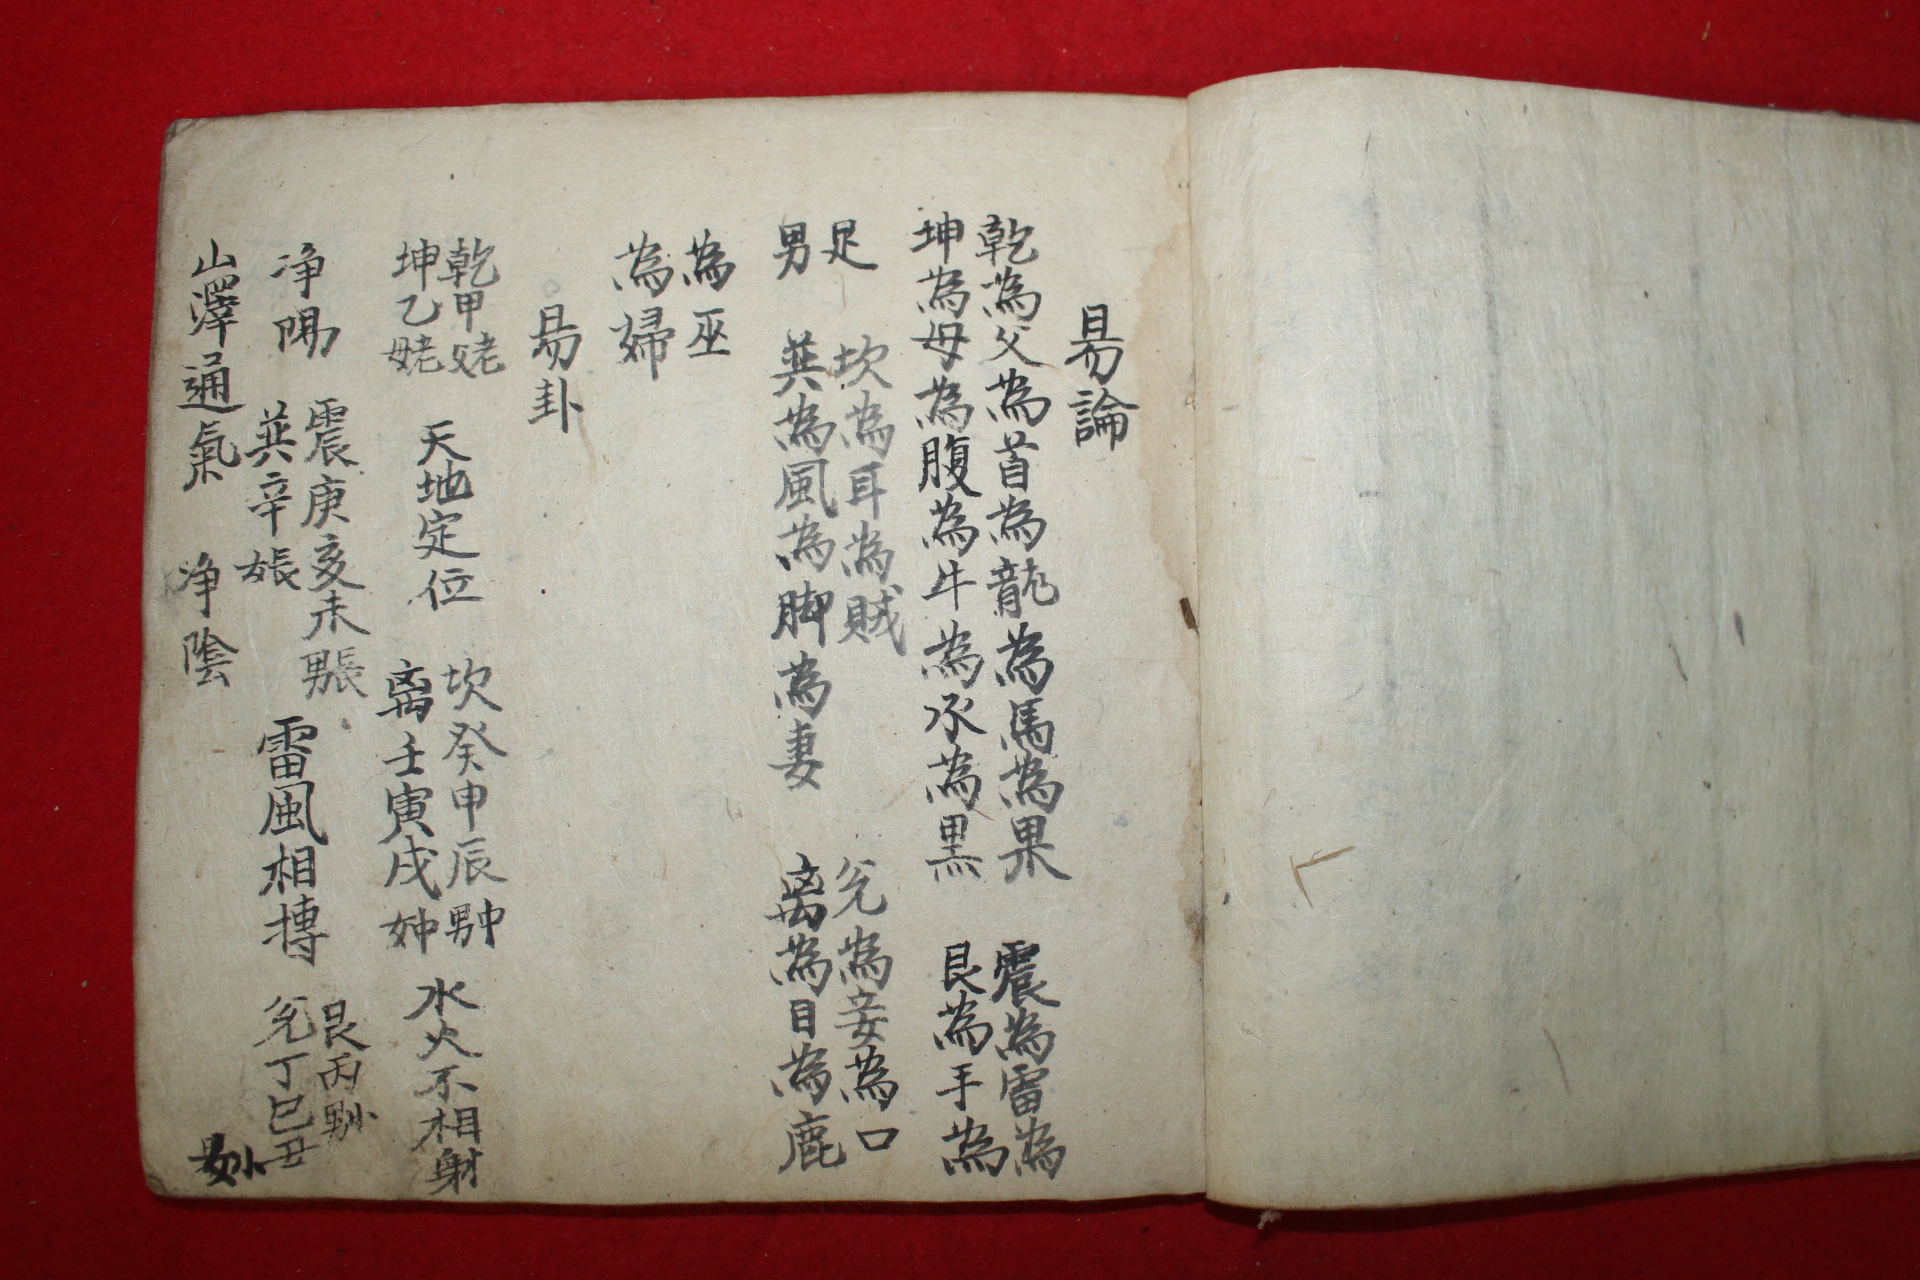 易論
乾為父為首為龍為馬為果
坤為母為腹為牛為承為黑
震為雷為
艮為手為
足
男
坎為耳為賊
巽為風為脚為妻
兌為妾為口
离為目為鹿
為巫
為婦
易卦
乾甲老
坤乙姥
天地定位
坎癸申辰
离壬寅戌
水火不相射
净陽
震庚亥未
巽辛
雷風相搏
艮丙
兌丁巳丑
山澤通氣
净陰